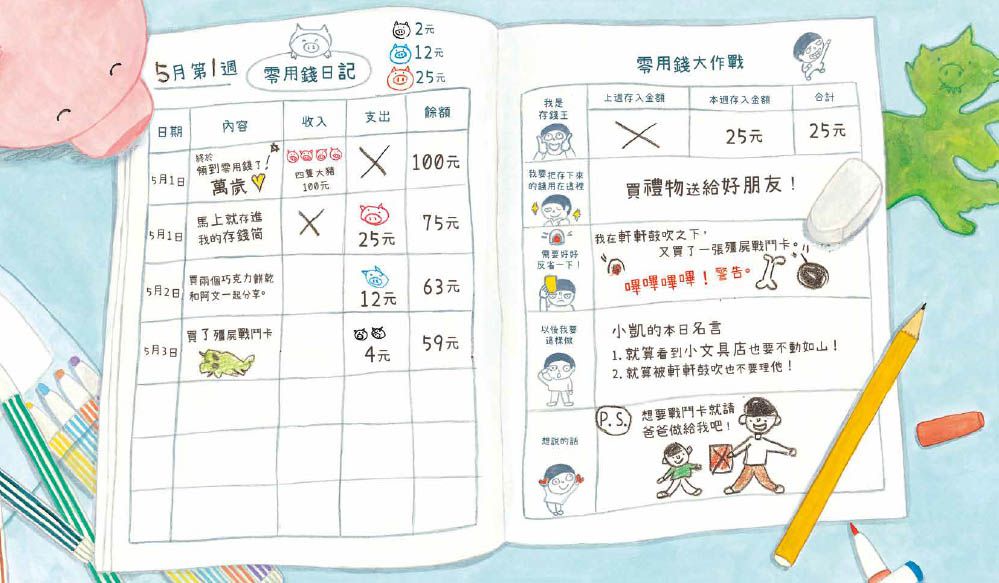 5月第1週
零用錢日記
2元
12元
25元
日期 內容 收入 支出 餘額
5月1日
終於
領到零用錢了!
萬歲
四隻大豬
100元
100元
5月1日
馬上就存進
我的存錢筒
25元
75元
5月2日
買兩個巧克力餅乾
和阿文一起分享。
12元
63元
5月3日
買了殭屍戰鬥卡
4元
59元
零用錢大作戰
我是
存錢王
上週存入金額 本週存入金額 合計
25元 25元
我要把存下來
的錢用在這裡
買禮物送給好朋友!
需要好好
反省一下!
我在軒軒鼓吹之下,
又買了一張殭屍戰鬥卡。
嗶嗶嗶嗶!警告。
以後我要
這樣做
小凱的本日名言
1.就算看到小文具店也要不動如山!
2.就算被軒軒鼓吹也不要理他!
想說的話
P.S.
想要戰鬥卡就請
爸爸做給我吧!